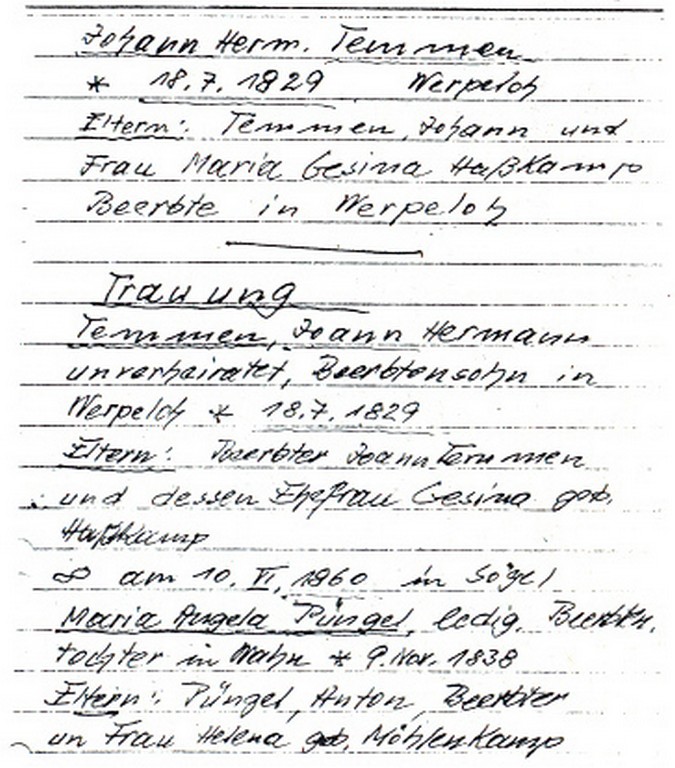 Johann Herm. Temmen
* 18.7.1829 Werpeloh
Eltern: Temmen, Johann und
Frau Maria Gesina Haßkamp
Beerbte in Werpeloh
Trauung
Temmen, Joann Hermann
unverheiratet, Beerbtensohn in
Werpeloh * 18.7.1829
Eltern: Beerbter Joann Temmen
und dessen Ehefrau Gesina geb.
Haßkamp
∞ am 10. VI. 1860 in Sögel
Maria Angela Püngel, ledig, Beerbtn.
tochter in Wahn * 9. Nov. 1838
Eltern: Püngel, Anton, Beerbter
un Frau Helena geb. Möhlenkamp